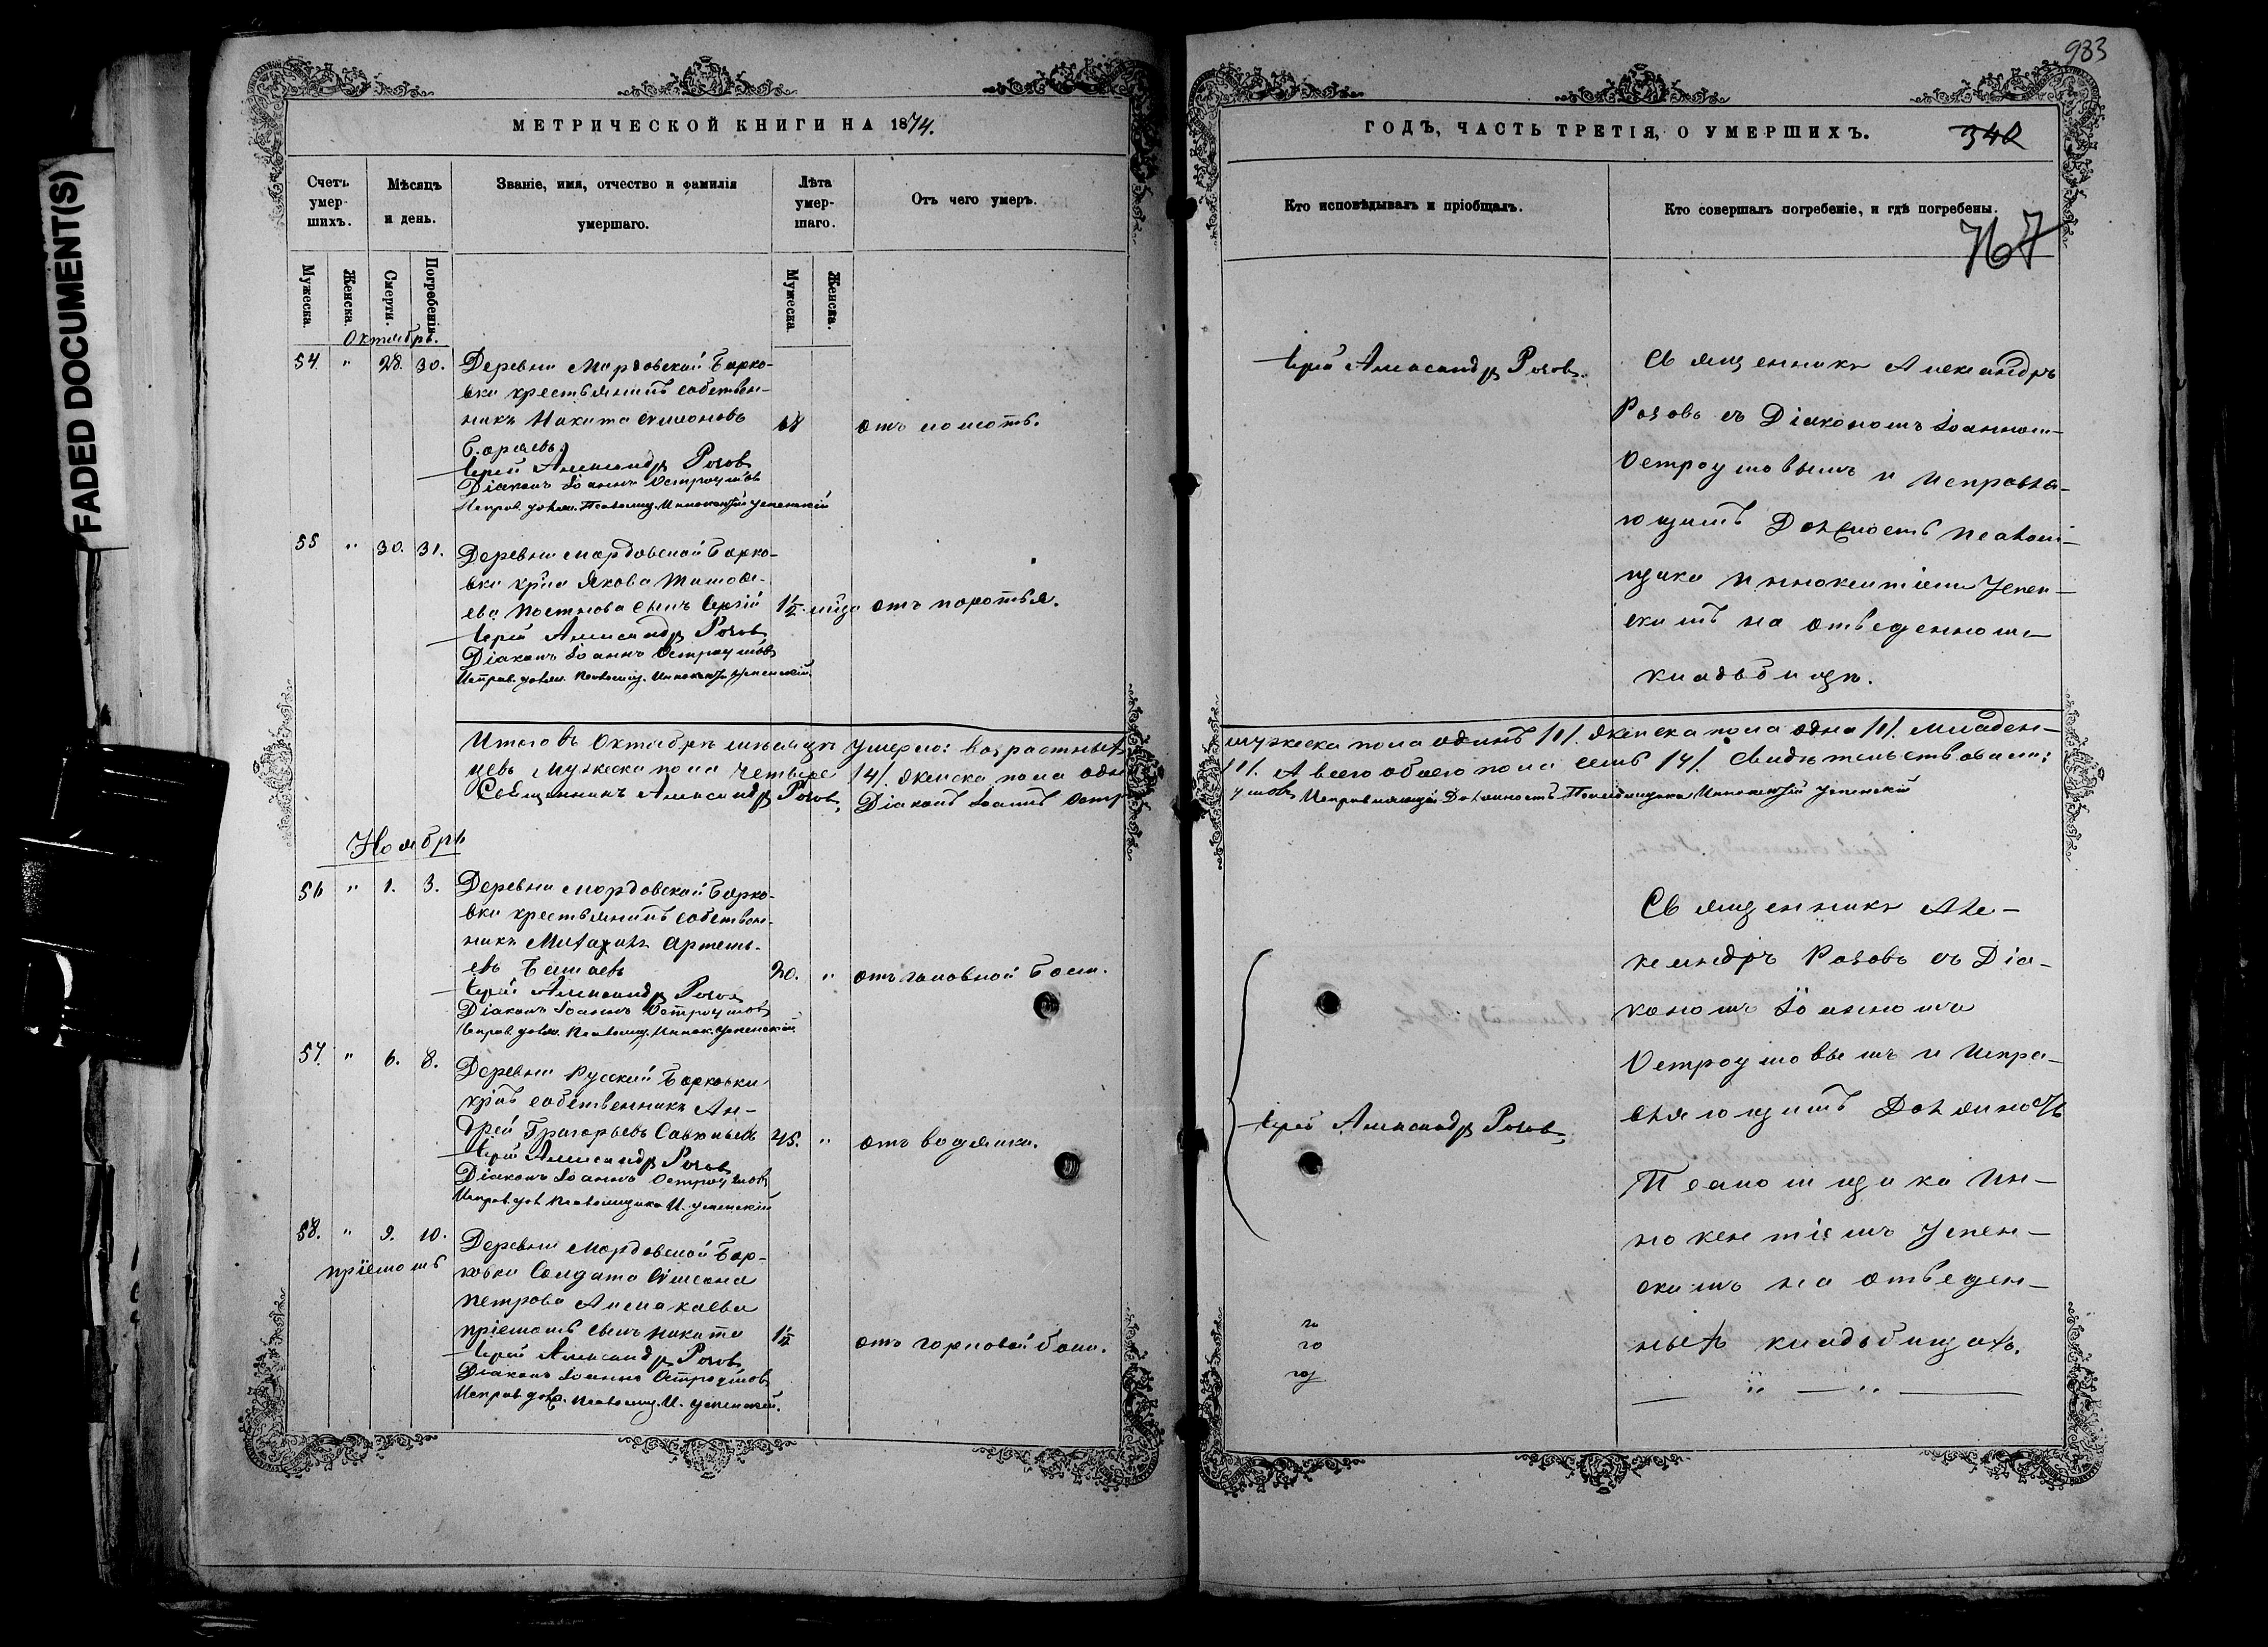 FADED DOCUMENT(S)
983
МЕТРИЧЕСКОЙ КНИГИ НА 1874.
Счетъ умерших. Мѣсяцъ и день. Званіе, имя, отчество и фамилія умершаго. Лѣта умершаго. Отъ чего умеръ.
Мужеска. Женска. Смерти. Погребенія. Мужеска. Женска.
Октябрь.
54. " 28. 30. Деревни Мордовской Барко-
вки крестьянинъ собствен-
никъ Никита Симоновъ 68 отъ ломотъ.
Іерей Александръ Розовъ
Діаконъ Іоаннъ Остроумовъ
Исправ. долж. Псаломщ. Иннокентій Успенскій
55 " 30. 31. Деревни Мордовской Барко-
вки кр̃на Якова Тимоѳе-
ева сынъ Сергій 1½ отъ поротья.
Іерей Александръ Розовъ
Діаконъ Іоаннъ Остроумовъ
Исправ. долж. Псаломщ. Иннокентій Успенскій.
Итого въ Октябрѣ мѣсяцѣ умерло: возрастныхъ
цевъ мужеска пола четверо /4/. женска пола одна
Священникъ Александръ Розовъ, Діаконъ Іоаннъ Остр
Ноябрь
56 " 1. 3. Деревни Мордовской Барко-
вки крестьянинъ собствен-
никъ Михаилъ Артемь-
евъ 20. " отъ головной боли.
Іерей Александръ Розовъ
Діаконъ Іоаннъ Остроумовъ
Исправ. долж. Псаломщ. Иннок. Успенскій
57. " 6. 8. Деревни Русской Барковки
кр̃нъ собственникъ Ан-
дрей Григорьевъ Савельевъ 45. " отъ водянки.
Іерей Александръ Розовъ
Діаконъ Іоаннъ Остроумовъ
Исправ. дол. Псаломщика И. Успенскій
58. " 9. 10. Деревни Мордовской Бар-
пріемышъ ковки Солдата Симеона
Петрова
пріемышъ сынъ Никита отъ горловой боли.
Іерей Александръ Розовъ
Діаконъ Іоаннъ Остроумовъ
Исправ. долж. Псаломщ. И. Успенскій.
ГОДЪ, ЧАСТЬ ТРЕТІЯ, О УМЕРШИХЪ. 340
Кто исповѣдывалъ и пріобщалъ. Кто совершалъ погребеніе, и гдѣ погребены.
767
Іерей Александръ Розовъ. Священникъ Александръ
Розовъ съ Діакономъ Іоанном-
Остроумовымъ и исправля-
ющимъ Должность псалом-
щика Иннокентіемъ Успен-
скимъ на отведенномъ
кладбищѣ.
мужеска пола одинъ /1/. женска пола одна /1/. младен-
/1/. А всего обоего пола семь /7/. Свидѣтельствовали:
умовъ, Исправляющій Должность Псаломщика Иннокентій Успенскій
Священникъ Але-
ксандръ Розовъ съ Діа-
кономъ Іоанномъ
Остроумовымъ и испра-
Іерей Александръ Розовъ. вляющимъ Должность
Псаломщика Ин-
нокентіемъ Успен-
скимъ на отведен-
ныхъ кладбищахъ.